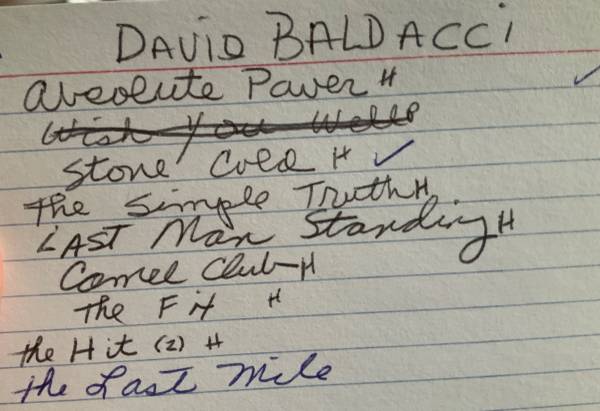 DAVID BALDACCI
Absolute Power H
Wish You Well
Stone Cold H ✓
The Simple Truth H
LAST Man Standing H
Camel Club-H
The Fix H
the Hit (2) H
the Last Mile